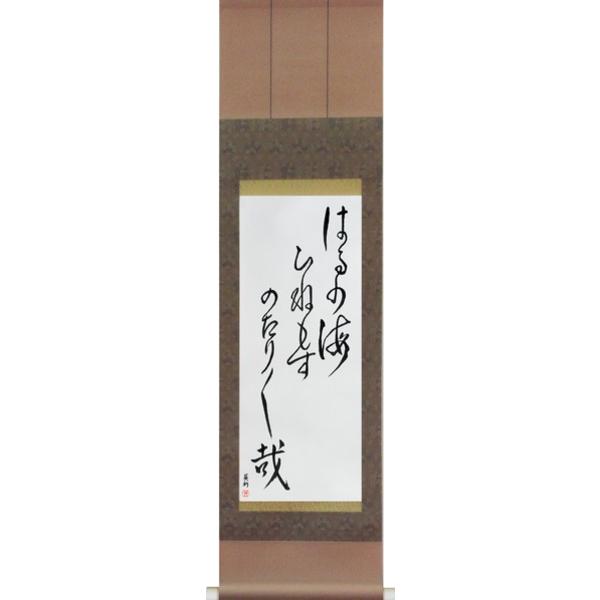 はるの海
ひねもす
のたり〱哉